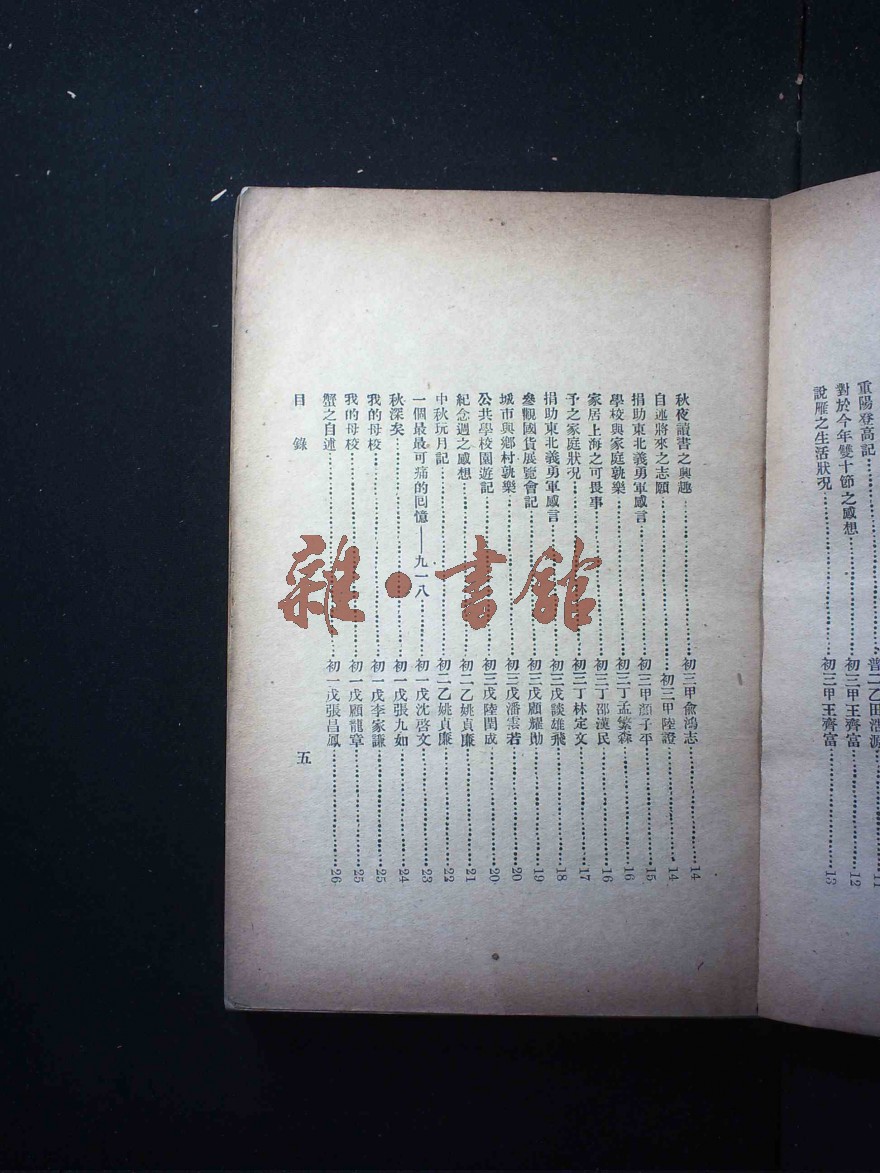 重陽登高記⋯⋯普二乙田浩源⋯⋯11
對於今年雙十節之感想⋯⋯初三甲王齊富⋯⋯12
說雁之生活狀况⋯⋯初三甲王齊富⋯⋯13
秋夜讀書之興趣⋯⋯初三甲俞鴻志⋯⋯14
自述將來之志願⋯⋯初三甲陸證⋯⋯14
捐助東北義勇軍感言⋯⋯初三甲顏子平⋯⋯15
學校與家庭孰樂⋯⋯初三丁孟繁森⋯⋯16
家居上海之可畏事⋯⋯初三丁邵漢民⋯⋯16
予之家庭狀况⋯⋯初三丁林定文⋯⋯17
捐助東北義勇軍感言⋯⋯初三戊談雄飛⋯⋯18
參觀國貨展覽會記⋯⋯初三戊顧耀勛⋯⋯19
城市與鄉村孰樂⋯⋯初三戊潘雲若⋯⋯20
公共學校園遊記⋯⋯初三戊陸閏成⋯⋯20
紀念週之感想⋯⋯初二乙姚貞廉⋯⋯21
中秋玩月記⋯⋯初二乙姚貞廉⋯⋯22
一個最最可痛的囘憶——九一八⋯⋯初一戊沈啓文⋯⋯23
秋深矣⋯⋯初一戊張九如⋯⋯24
我的母校⋯⋯初一戊李家謙⋯⋯25
我的母校⋯⋯初一戊顧龍章⋯⋯25
蟹之自述⋯⋯初一戊張昌鳳⋯⋯26
目錄
五
雜·書館